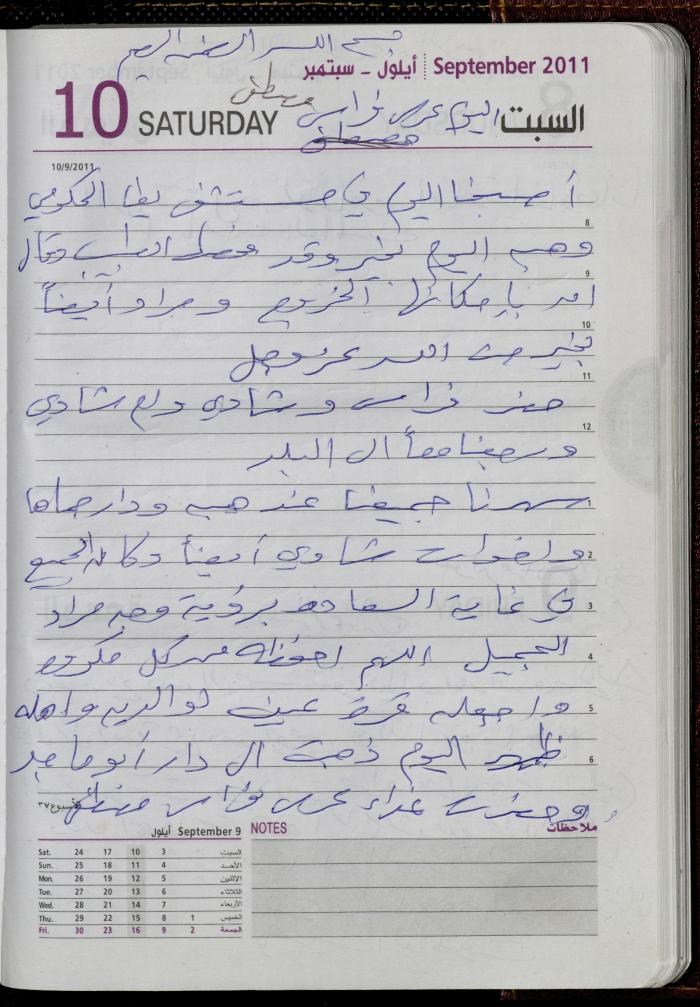 بسم الله الرحمن الرحيم
أيلول - سبتمبر September 2011
10 SATURDAY السبت
اليوم عرس فراس مصطفى
10/9/2011
أصبحنا اليوم في مستشفى يافا الحكومي
8
وهبه اليوم بخير وقد الطبيب وقال
9
انه بإمكانها الخروج ومراد أيضاً
10
بخير من الله عز وجل
11
حضر فراس وشادي وام شادي
12
ورجعنا معاً الى البلد
سهرنا جميعنا عند هبه ودار حماها
1
واخوات شادي أيضاً وكان الجميع
2
في غاية السعاده برؤية وجه مراد
3
الجميل اللهم احفظه من كل مكروه
4
واجعله قرة عين لوالديه واهله
5
ظهر اليوم ذهبت الى دار أبو ماجد
6
وحضرت غداء عرس فراس مصطفى
الأسبوع ٣٧
أيلول September 9
Sat. 24 17 10 3 السبت
Sun. 25 18 11 4 الأحد
Mon. 26 19 12 5 الاثنين
Tue. 27 20 13 6 الثلاثاء
Wed. 28 21 14 7 الأربعاء
Thu. 29 22 15 8 1 الخميس
Fri. 30 23 16 9 2 الجمعة
NOTES ملاحظات